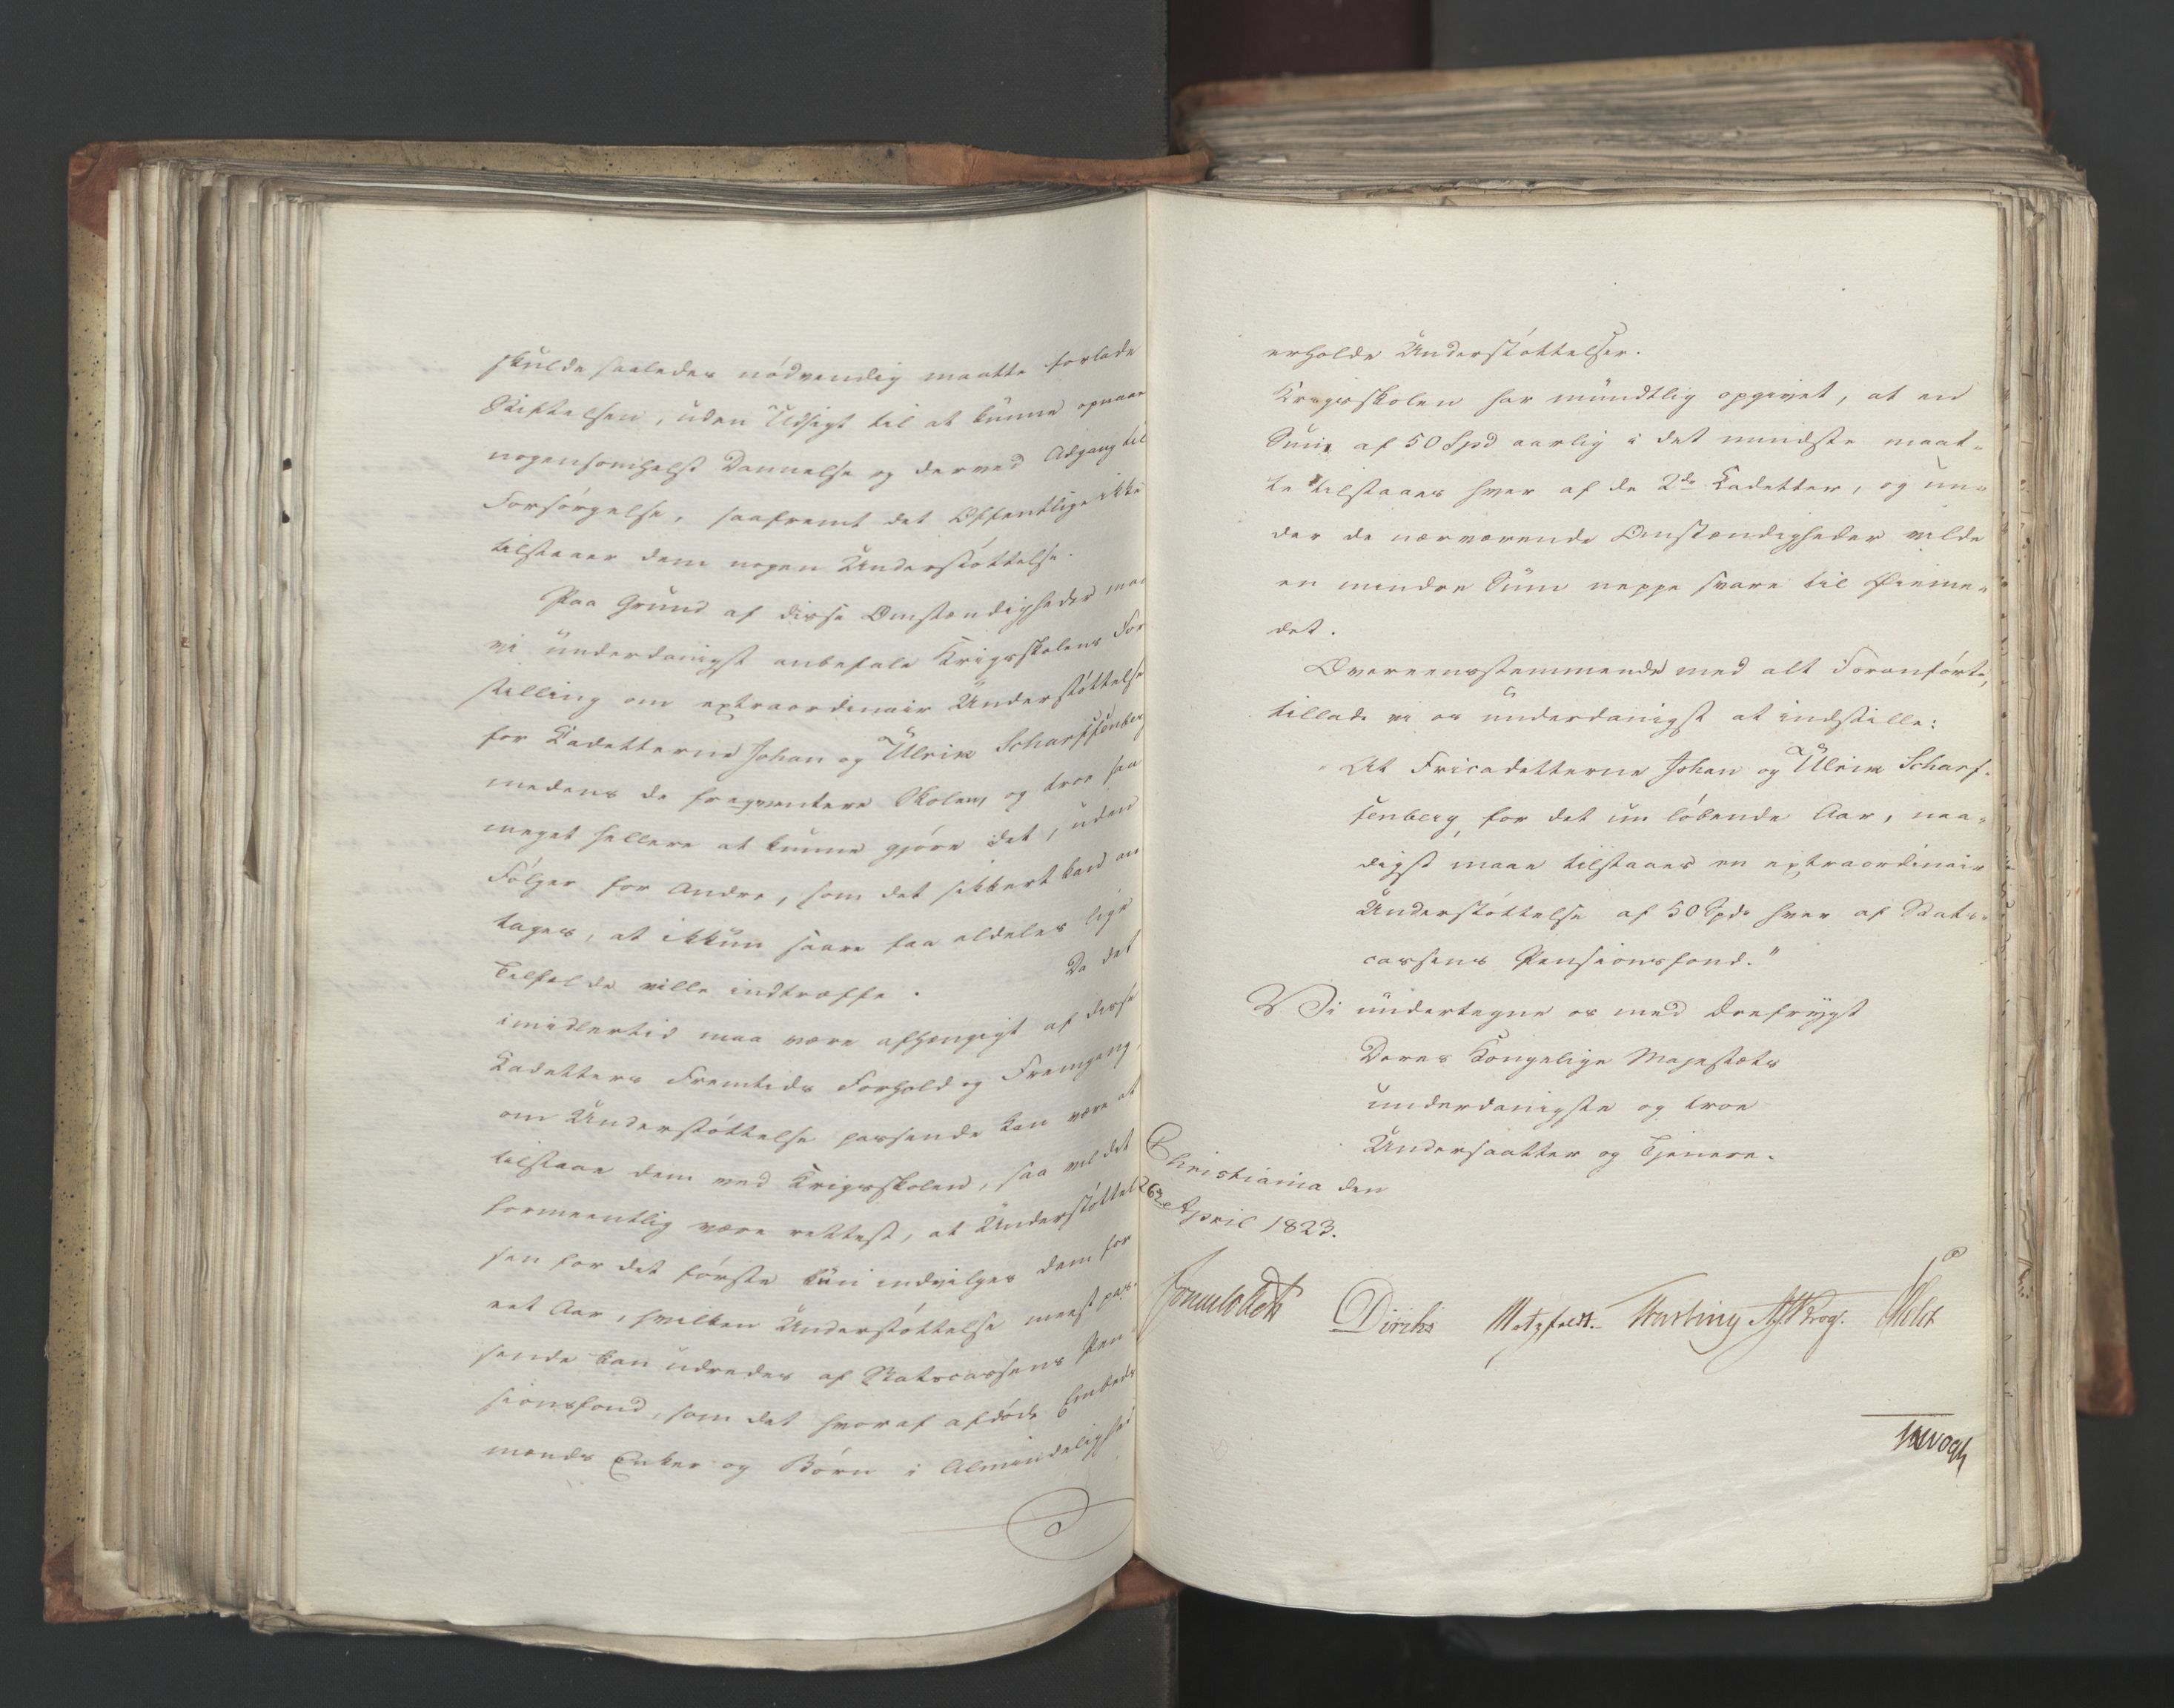 skulde saaledes nødvendig maatte forlade
Stiftelsen, uden Udsigt til at kunne opnaae
nogensomhelst Dannelse og derved Adgang til
Forsørgelse, saafremt det Offentlige ikke
tilstaaer dem nogen Understøttelse.
Paa Grund af disse Omstændigheder maa
vi underdanigst anbefale Krigsskolens Fore
stilling om extraordinair Understøttelse
for Kadetterne Johan og Ulrik Scharffenberg
medens de freqventere Skolen, og troe saa
meget hellere at kunne gjøre det, uden
Følger for Andre, som det sikkert kan an
tages, at ikkun saare faa aldeles lige
Tilfælde ville indtræffe. Da det
imidlertid maa være afhængigt af disse
Kadetters Fremtids Forhold og Fremgang,
om Understøttelse passende kan være at
tilstaae dem ved Krigsskolen, saa vil det
formeentlig være rettest, at Understøttel
sen for det første kun indvilges dem for
eet Aar, hvilken Understøttelse meest pas-
sende kan udredes af Statscassens Pen-
sionsfond, som det hvoraf afdøde Embeds
mænds Enker og Børn i Almindelighed
erholde Understøttelser.
Krigsskolen har mundtlig opgivet, at en
Sum af 50 Spd aarlig i det mindste maat-
te tilstaaes hver af de 2de Kadetter, og un-
der de nærværende Omstændigheder vilde
en mindre Sum neppe svare til Øieme-
det.
Overeensstemmende med alt Foranførte,
tillade vi os underdanigst at indstille:
"At Fricadetterne Johan og Ulrik Scharf-
fenberg, for det nu løbende Aar, naa-
digst maae tilstaaes en extraordinair
Understøttelse af 50 Spd hver af Stats-
cassens Pensionsfond."
Vi undertegne os med Ærefrygt
Deres Kongelige Majestæts
underdanigste og troe
Undersaatter og Tjenere.
Christiania den
26de April 1823.
Sommerfeldt Diriks Motzfeldt. Krog. Holst
JHVogt